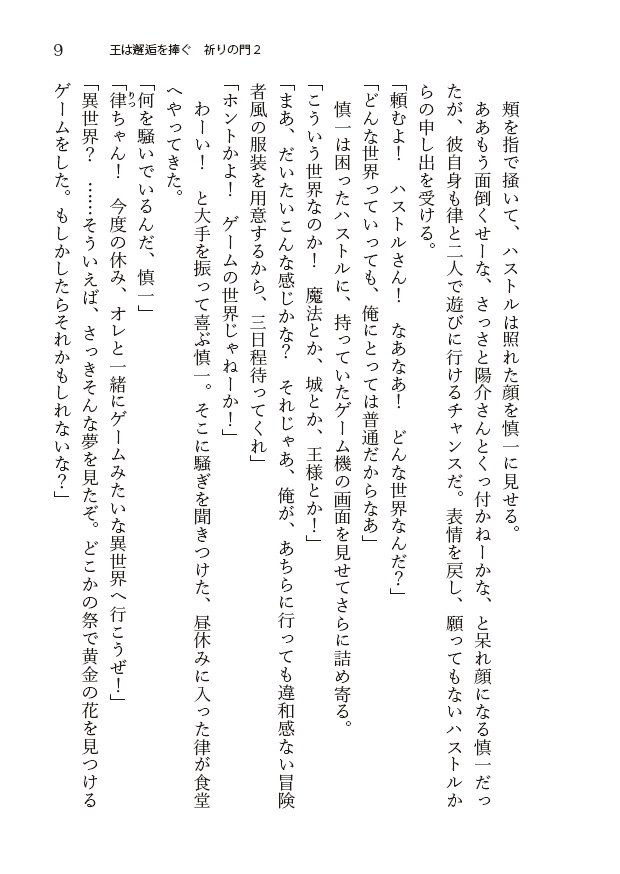 9
王は邂逅を捧ぐ　祈りの門２
　頬を指で掻いて、ハストルは照れた顔を慎一に見せる。
　ああもう面倒くせーな、さっさと陽介さんとくっ付かねーかな、と呆れ顔になる慎一だっ
たが、彼自身も律と二人で遊びに行けるチャンスだ。表情を戻し、願ってもないハストルか
らの申し出を受ける。
「頼むよ！　ハストルさん！　なあなあ！　どんな世界なんだ？」
「どんな世界っていっても、俺にとっては普通だからなあ」
　慎一は困ったハストルに、持っていたゲーム機の画面を見せてさらに詰め寄る。
「こういう世界なのか！　魔法とか、城とか、王様とか！」
「まあ、だいたいこんな感じかな？　それじゃあ、俺が、あちらに行っても違和感ない冒険
者風の服装を用意するから、三日程待ってくれ」
「ホントかよ！　ゲームの世界じゃねーか！」
　わーい！　と大手を振って喜ぶ慎一。そこに騒ぎを聞きつけた、昼休みに入った律が食堂
へやってきた。
「何を騒いでいるんだ、慎一」
「律ちゃん！　今度の休み、オレと一緒にゲームみたいな異世界へ行こうぜ！」
りつ
「異世界？　……そういえば、さっきそんな夢を見たぞ。どこかの祭で黄金の花を見つける
ゲームをした。もしかしたらそれかもしれないな？」